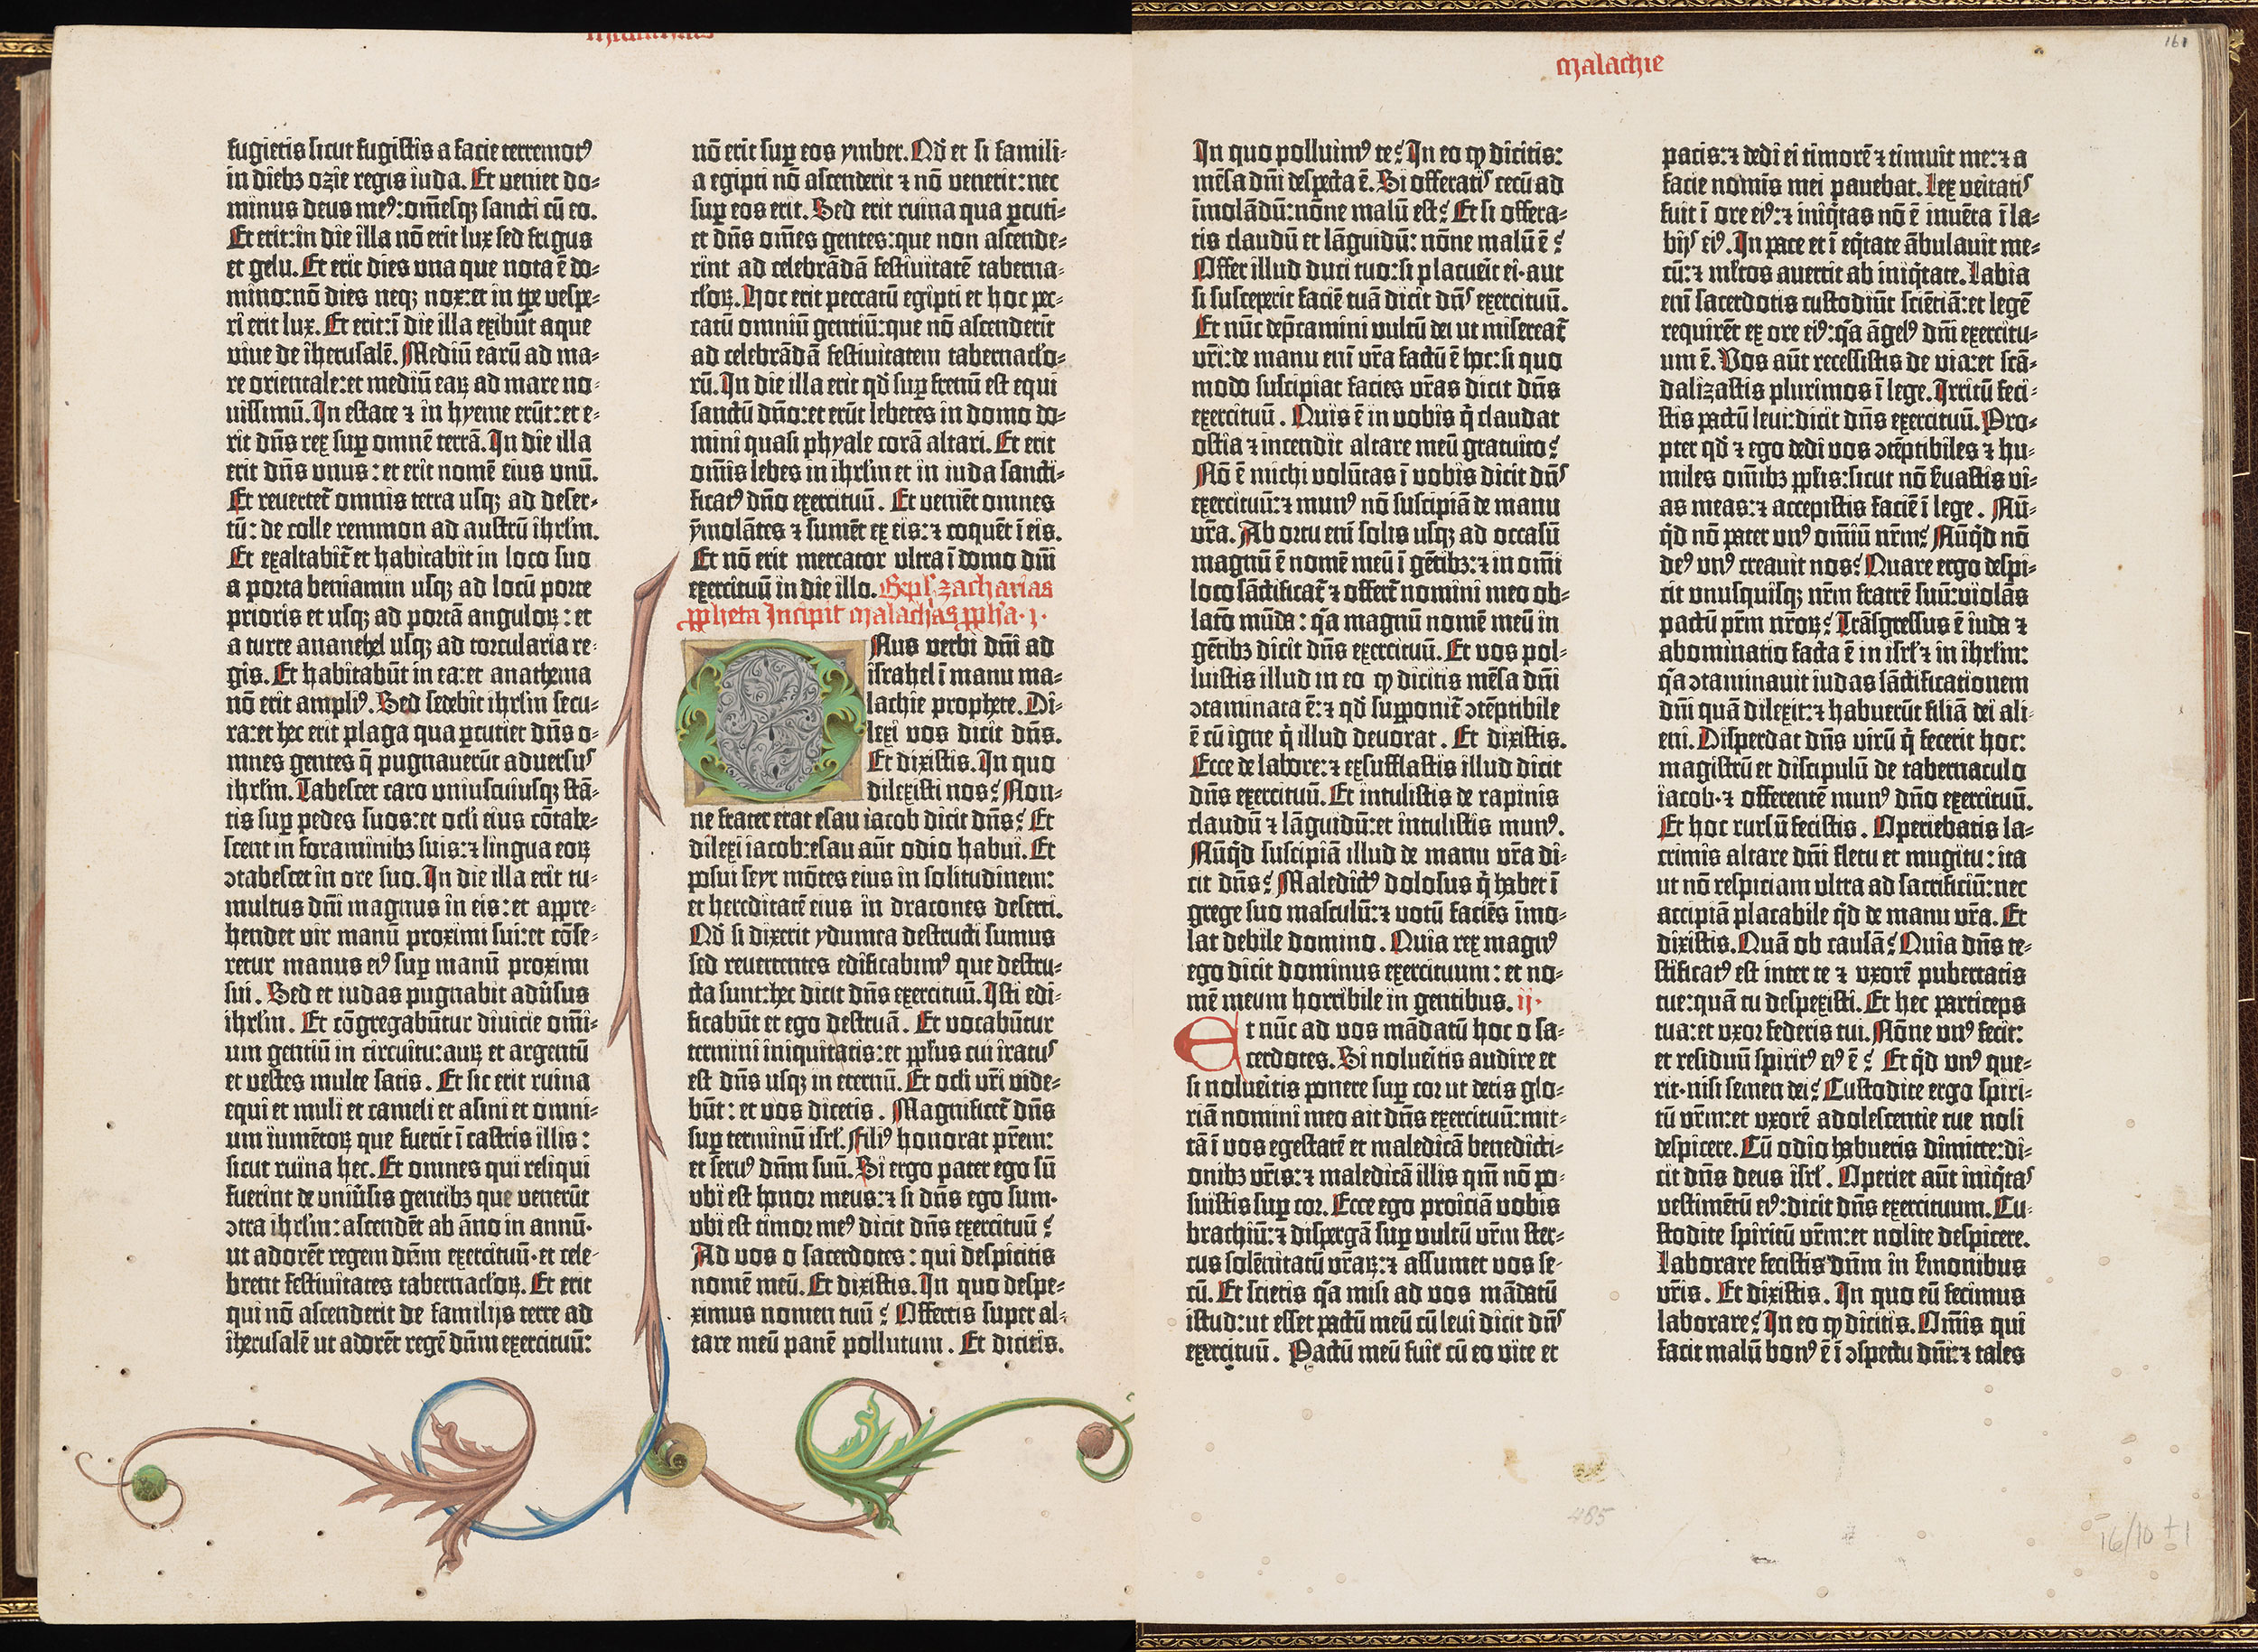 malachie
161
fugietis sicut fugistis a facie terremotꝰ
in diebꝫ ozie regis iuda. Et veniet do⸗
minus deus meꝰ: om̄esqꝫ sancti cū eo.
Et erit: in die illa nō erit lux sed frigus
et gelu. Et erit dies vna que nota ē do⸗
mino: nō dies neqꝫ nox: et in tꝑe vespe⸗
ri erit lux. Et erit: ī die illa exibūt aque
viue de iherusalē. Mediū earū ad ma⸗
re orientale: et mediū eaꝝ ad mare no⸗
uissimū. In estate ⁊ in hyeme erūt: et e⸗
rit dn̄s rex suꝑ omnē terrā. In die illa
erit dn̄s vnus: et erit nomē eius vnū.
Et reuertet᷑ omnis terra usqꝫ ad deser⸗
tū: de colle remmon ad austrū ihrl̄m.
Et exaltabit᷑ et habitabit in loco suo
a porta beniamin usqꝫ ad locū porte
prioris et usqꝫ ad portā anguloꝝ: et
a turre ananehel usqꝫ ad torcularia re⸗
gis. Et habitabūt in ea: et anathema
nō erit ampliꝰ. Sed sedebit ihrl̄m secu⸗
ra: et hec erit plaga qua ꝑcutiet dn̄s o⸗
mnes gentes q̄ pugnauerūt aduersus
ihrl̄m. Tabescet caro vniuscuiusqꝫ stā⸗
tis suꝑ pedes suos: et ocl̓i eius cōtabe⸗
scent in foraminibꝫ suis: ⁊ lingua eoꝝ
ɔtabescet in ore suo. In die illa erit tu⸗
multus dn̄i magnus in eis: et appre⸗
hendet vir manū proximi sui: et cōse⸗
retur manus eiꝰ suꝑ manū proximi
sui. Sed et iudas pugnabit adūsus
ihrl̄m. Et cōgregabūtur diuicie om̄i⸗
um gentiū in circuitu: auꝝ et argentū
et vestes multe satis. Et sic erit ruina
equi et muli et cameli et asini et omni⸗
um iumētoꝝ que fuerīt ī castris illis:
sicut ruina hec. Et omnes qui reliqui
fuerint de vniūsis gentibꝫ que venerūt
ɔtra ihrl̄m: ascendēt ab āno in annū.
ut adorēt regem dn̄m exercituū. et cele⸗
brent festiuitates tabernacl̓oꝝ. Et erit
qui nō ascenderit de familijs terre ad
iherusalē ut adorēt regē dn̄m exercituū:
nō erit suꝑ eos ymber. Qd̓ et si famili⸗
a egipti nō ascenderit ⁊ nō venerit: nec
suꝑ eos erit. Sed erit ruina qua ꝑcuti⸗
et dn̄s om̄es gentes: que non ascende⸗
rint ad celebrādā festiuitatē taberna⸗
cl̓oꝝ. Hoc erit peccatū egipti et hoc pec⸗
catū omniū gentiū: que nō ascenderīt
ad celebrādā festiuitatem tabernacl̓o⸗
rū. In die illa erit qd̓ suꝑ frenū est equi
sanctū dn̄o: et erūt lebetes in domo do⸗
mini quasi phyale corā altari. Et erit
om̄is lebes in ihrl̄m et in iuda sancti⸗
ficatꝰ dn̄o exercituū. Et veniēt omnes
ȳmolātes ⁊ sumēt ex eis: ⁊ coquēt ī eis.
Et nō erit mercator ultra ī domo dn̄i
exercituū in die illo. Expl̓ zacharias
ꝓpheta Incipit malachias ꝓph̓a. j.
Nus verbi dn̄i ad
israhel ī manu ma⸗
lachie prophete. Di⸗
lexi vos dicit dn̄s.
Et dixistis. In quo
dilexisti nos? Non⸗
ne frater erat esau iacob dicit dn̄s? Et
dilexi iacob: esau aūt odio habui. Et
posui seyr mōtes eius in solitudinem:
et hereditatē eius in dracones deserti.
Qd̓ si dixerit ydumea destructi sumus
sed reuertentes edificabimꝰ que destru⸗
cta sunt: hec dicit dn̄s exercituū. Isti edi⸗
ficabūt et ego destruā. Et vocabūtur
termini iniquitatis: et ppl̓us cui iratus
est dn̄s usqꝫ in eternū. Et ocl̓i vr̄i vide⸗
būt: et vos dicetis. Magnificet᷑ dn̄s
suꝑ terminū isrl̓. Filiꝰ honorat pr̄em:
et seruꝰ dn̄m suū. Si ergo pater ego sū
vbi est honor meus: ⁊ si dn̄s ego sum.
vbi est timor meꝰ dicit dn̄s exercituū?
Ad vos o sacerdotes: qui despicitis
nomē meū. Et dixistis. In quo despe⸗
ximus nomen tuū? Offertis super al⸗
tare meū panē pollutum. Et dicitis.
In quo polluimꝰ te? In eo ꝙ dicitis:
mēsa dn̄i despecta ē. Si offeratis cecū ad
īmolādū: nōne malū est? Et si offera⸗
tis claudū et lāguidū: nōne malū ē?
Offer illud duci tuo: si placuēit ei. aut
si susceperit faciē tuā dicit dn̄s exercituū.
Et nūc dep̄camini vultū dei ut misereat᷑
vr̄i: de manu enī vr̄a factū ē hoc: si quo
modo suscipiat facies vr̄as dicit dn̄s
exercituū. Quis ē in vobis q̇ claudat
ostia ⁊ incendit altare meū gratuito?
Nō ē michi volūtas ī vobis dicit dn̄s
exercituū: ⁊ munꝰ nō suscipiā de manu
vr̄a. Ab ortu enī solis usqꝫ ad occasū
magnū ē nomē meū ī gētibꝫ: ⁊ in om̄i
loco sāctificat᷑ ⁊ offert᷑ nomini meo ob⸗
latō mūda: q̇a magnū nomē meū in
gētibꝫ dicit dn̄s exercituū. Et vos pol⸗
luistis illud in eo ꝙ dicitis mēsa dn̄i
ɔtaminata ē: ⁊ qd̓ supponit᷑ ɔtēptibile
ē cū igne q̇ illud deuorat. Et dixistis.
Ecce de labore: ⁊ exsufflastis illud dicit
dn̄s exercituū. Et intulistis de rapinis
claudū ⁊ lāguidū: et intulistis munꝰ.
Nūq̇d suscipiā illud de manu vr̄a di⸗
cit dn̄s? Maledictꝰ dolosus q̇ habet ī
grege suo masculū: ⁊ votū faciēs īmo⸗
lat debile domino. Quia rex magnꝰ
ego dicit dominus exercituum: et no⸗
mē meum horribile in gentibus. ij.
Et nūc ad vos mādatū hoc o sa⸗
cerdotes. Si noluēitis audire et
si noluēitis ponere suꝑ cor ut detis glo⸗
riā nomini meo ait dn̄s exercituū: mit⸗
tā ī vos egestatē et maledicā benedicti⸗
onibꝫ vr̄is: ⁊ maledicā illis qm̄ nō po⸗
suistis suꝑ cor. Ecce ego proiciā vobis
brachiū: ⁊ dispergā suꝑ vultū vr̄m ster⸗
cus solēnitatū vr̄aꝝ: ⁊ assumet vos se⸗
cū. Et scietis q̇a misi ad vos mādatū
istud: ut esset pactū meū cū leui dicit dn̄s
exercituū. Pactū meū fuit cū eo vite et
pacis: ⁊ dedi ei timorē ⁊ timuit me: ⁊ a
facie nomīs mei pauebat. Lex veitatis
fuit ī ore eiꝰ: ⁊ iniq̇tas nō ē inuēta ī la⸗
bijs eiꝰ. In pace et ī eq̇tate ābulauit me⸗
cū: ⁊ ml̓tos auertit ab iniq̇tate. Labia
enī sacerdotis custodiūt sciētiā: et legē
requirēt ex ore eiꝰ: q̇a āgelꝰ dn̄i exercitu⸗
um ē. Vos aūt recessistis de via: et scā⸗
dalizastis plurimos ī lege. Irritū feci⸗
stis pactū leui: dicit dn̄s exercituū. Pro⸗
pter qd̓ ⁊ ego dedi vos ɔtēptibiles ⁊ hu⸗
miles om̄ibꝫ ppl̓is: sicut nō ẜuastis vi⸗
as meas: ⁊ accepistis faciē ī lege. Nū⸗
q̇d nō pater vnꝰ om̄iū nr̄m? Nūq̇d nō
deꝰ vnꝰ creauit nos? Quare ergo despi⸗
cit vnusquisqꝫ nr̄m fratrē suū: violās
pactū pr̄m nr̄oꝝ? Trāsgressus ē iuda ⁊
abominatio facta ē in isrl̓ ⁊ in ihrl̄m:
q̇a ɔtaminauit iudas sāctificationem
dn̄i quā dilexit: ⁊ habuerūt filiā dei ali⸗
eni. Disperdat dn̄s virū q̇ fecerit hoc:
magistrū et discipulū de tabernaculo
iacob. ⁊ offerentē munꝰ dn̄o exercituū.
Et hoc rursū fecistis. Operiebatis la⸗
crimis altare dn̄i fletu et mugitu: ita
ut nō respiciam ultra ad sacrificiū: nec
accipiā placabile q̇d de manu vr̄a. Et
dixistis. Quā ob causā? Quia dn̄s te⸗
stificatꝰ est inter te ⁊ vxorē pubertatis
tue: quā tu despexisti. Et hec particeps
tua: et vxor federis tui. Nōne vnꝰ fecit:
et residuū spiritꝰ eiꝰ ē? Et q̇d vnꝰ que⸗
rit. nisi semen dei? Custodite ergo spiri⸗
tū vr̄m: et vxorē adolescentie tue noli
despicere. Cū odio habueris dimitte: di⸗
cit dn̄s deus isrl̓. Operiet aūt iniq̇tas
vestimētū eiꝰ: dicit dn̄s exercituum. Cu⸗
stodite spiritū vr̄m: et nolite despicere.
Laborare fecistis dn̄m in ẜmonibus
vr̄is. Et dixistis. In quo eū fecimus
laborare? In eo ꝙ dicitis. Om̄is qui
facit malū bonꝰ ē ī ɔspectu dn̄i: ⁊ tales
465
16/10 ± 1